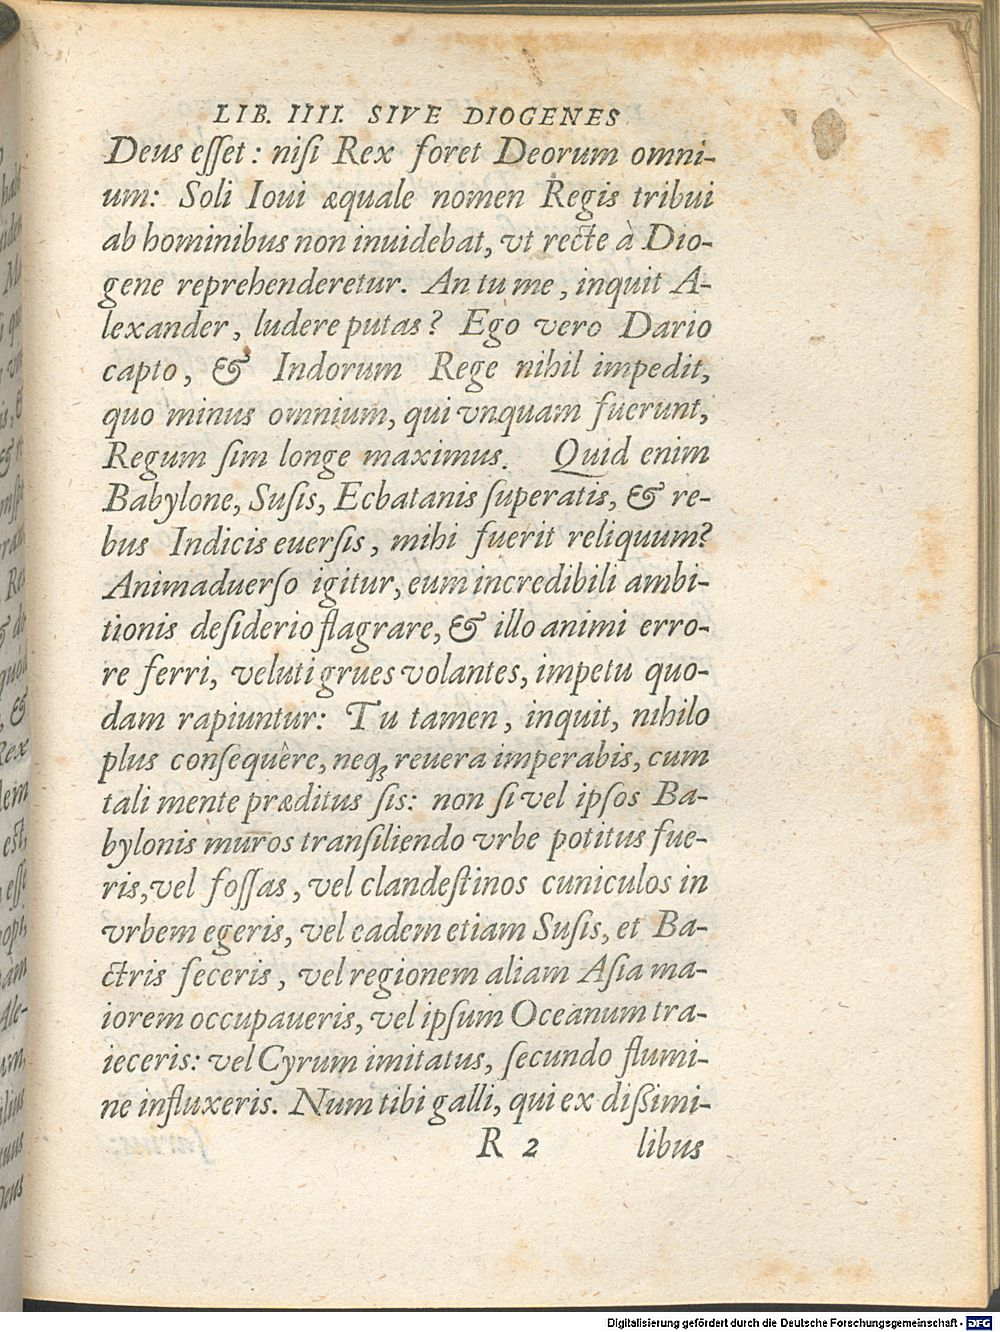 LIB. IIII. SIVE DIOGENES
Deus eſſet: niſi Rex foret Deorum omni-
um: Soli Ioui æquale nomen Regis tribui
ab hominibus non inuidebat, vt recte à Dio-
gene reprehenderetur. An tu me, inquit A-
lexander, ludere putas? Ego vero Dario
capto, & Indorum Rege nihil impedit,
quo minus omnium, qui vnquam fuerunt,
Regum ſim longe maximus. Quid enim
Babylone, Suſis, Ecbatanis ſuperatis, & re-
bus Indicis euerſis, mihi fuerit reliquum?
Animaduerſo igitur, eum incredibili ambi-
tionis deſiderio flagrare, & illo animi erro-
re ferri, veluti grues volantes, impetu quo-
dam rapiuntur: Tu tamen, inquit, nihilo
plus conſequêre, neqꝫ reuera imperabis, cum
tali mente præditus ſis: non ſi vel ipſos Ba-
bylonis muros tranſiliendo vrbe potitus fue-
ris, vel foſſas, vel clandeſtinos cuniculos in
vrbem egeris, vel eadem etiam Suſis, et Ba-
ctris feceris, vel regionem aliam Aſia ma-
iorem occupaueris, vel ipſum Oceanum tra-
ieceris: vel Cyrum imitatus, ſecundo flumi-
ne influxeris. Num tibi galli, qui ex diſsimi-
R 2 libus
Digitalisierung gefördert durch die Deutsche Forschungsgemeinschaft - DFG